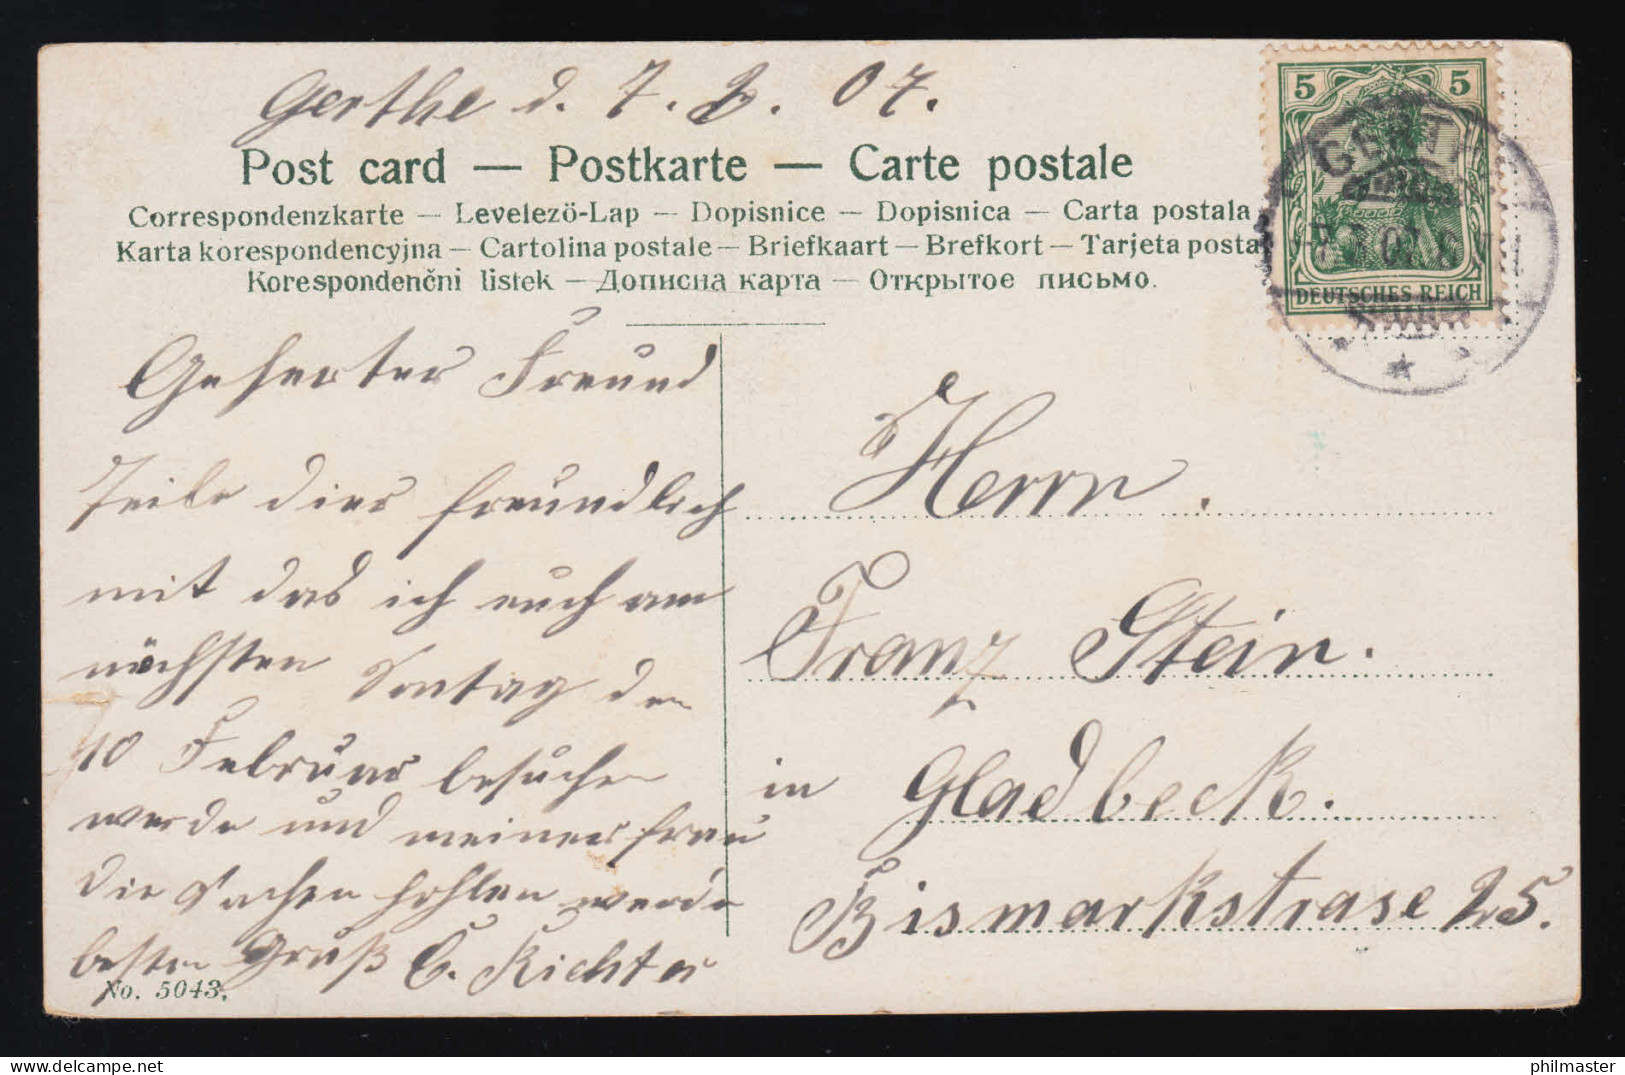 Gerthe d. 7. 2. 07.
Post card — Postkarte — Carte postale
Correspondenzkarte — Levelezö-Lap — Dopisnice — Dopisnica — Carta postala
Karta korespondencyjna — Cartolina postale — Briefkaart — Brefkort — Tarjeta postal
Korespondenčni listek — Дописна карта — Открытое письмо.
5 5
DEUTSCHES REICH
GERTHE
Geherter Freund
Teile dier freundlich
mit das ich euch am
nächsten Sontag den
10 Februar besuchen
werde und meiner frau
die Sachen hohlen werde
besten Gruß C. Richter
Herrn.
Franz Stein.
in Gladbeck.
Bismarkstrase 25.
No. 5043.
philmaster